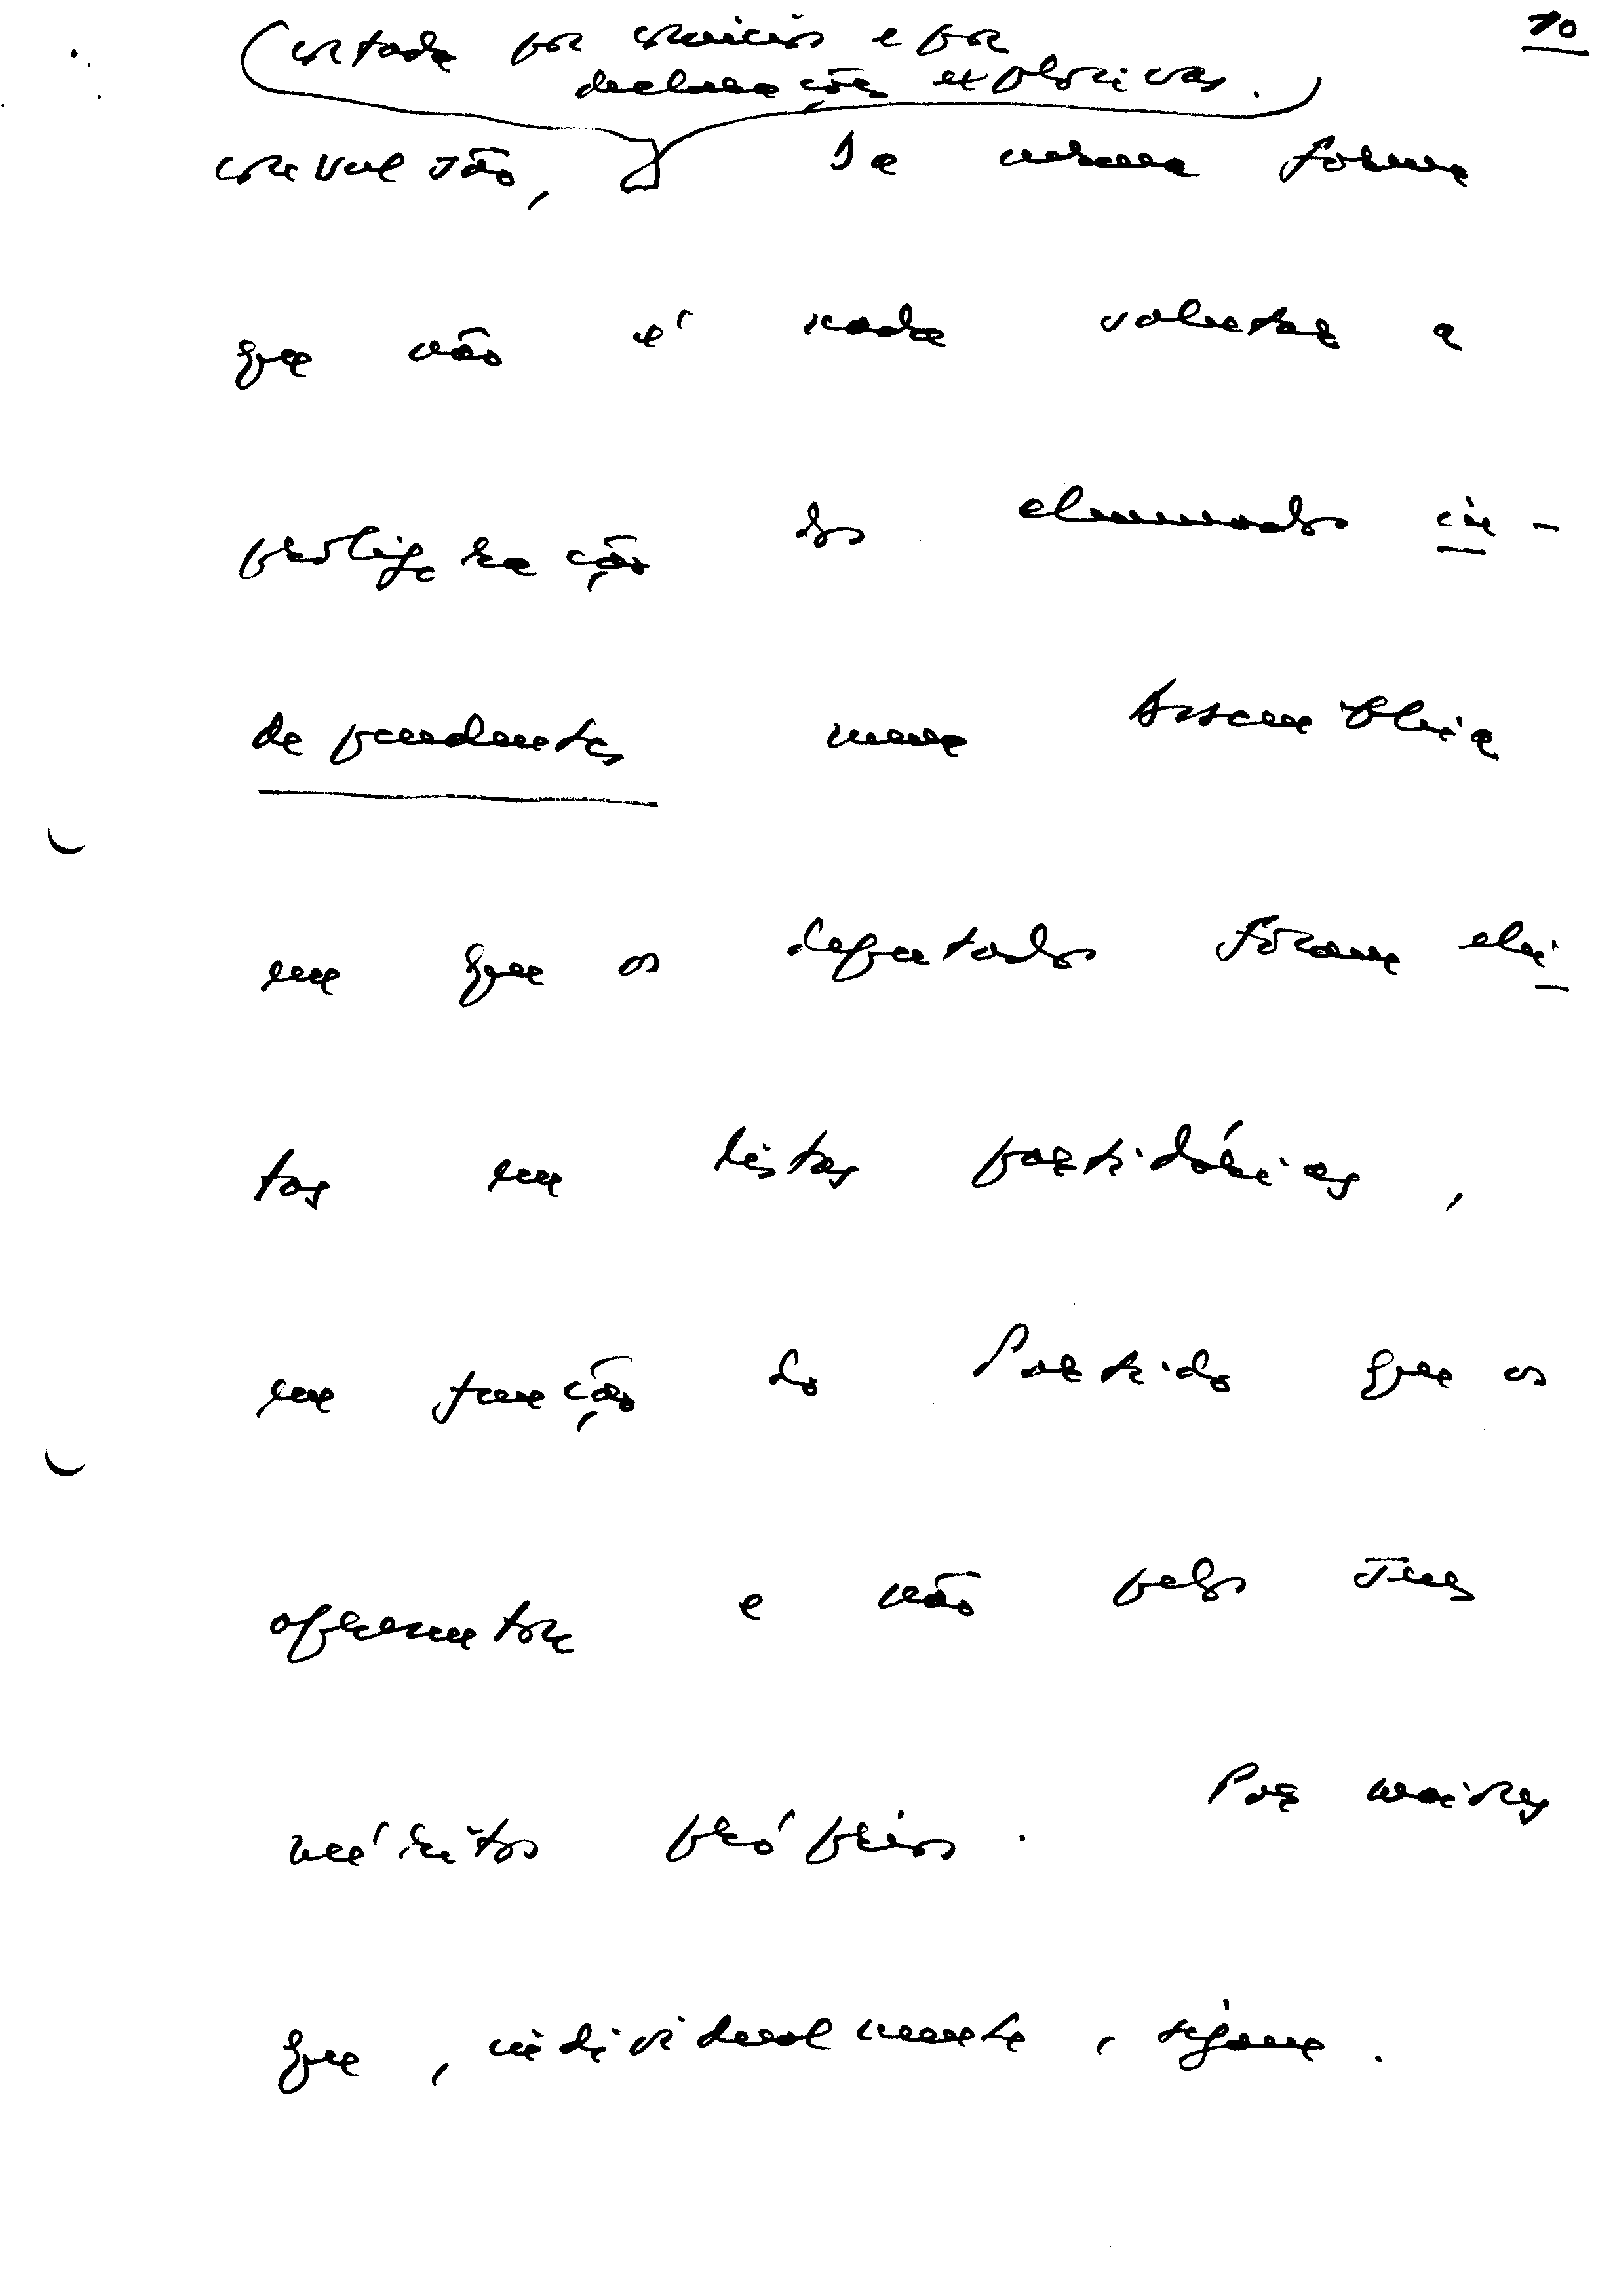 10
cortada por comícios e por
declarações explosivas.
convulsão, Da mesma forma
que não é nada salutar a
proliferação dos chamados in-
dependentes numa Assembleia
em que os deputados foram elei
tos em listas partidárias,
em função do Partido que os
apresentou e não pelos seus
méritos próprios. Por maiores
que, individualmente, sejam.